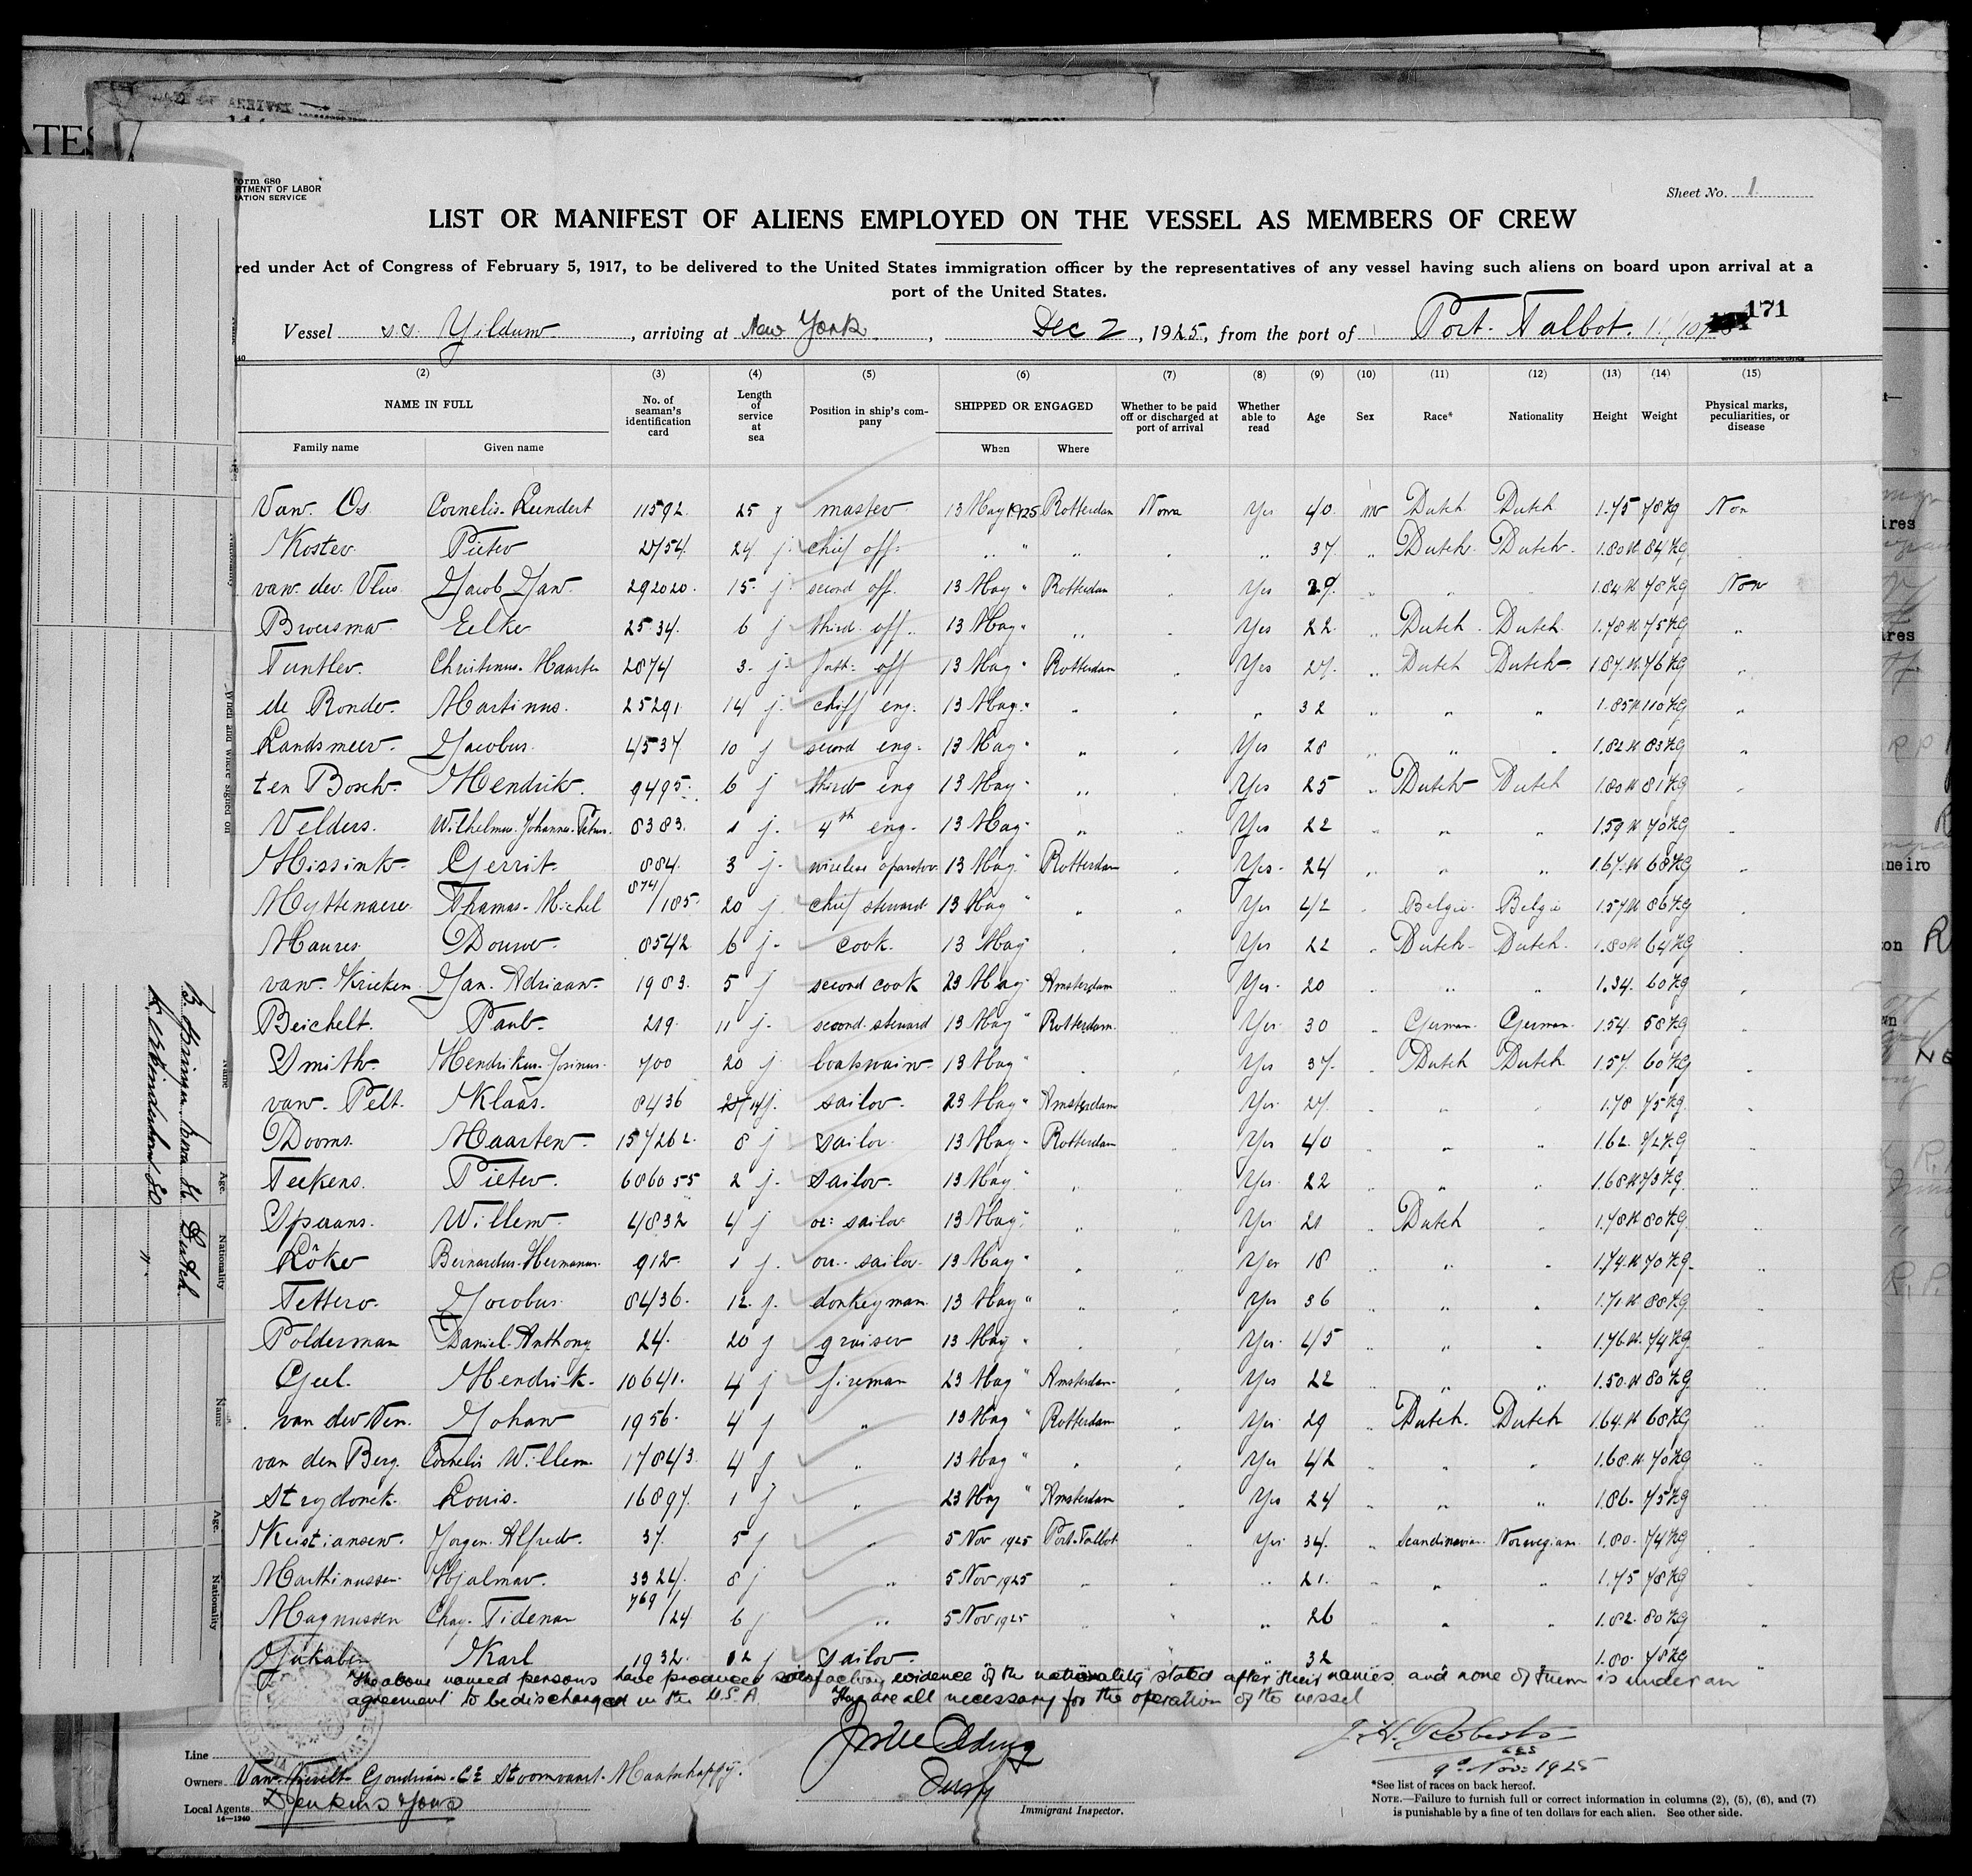 ATES
OF ARRIVAL
Form 680
RTMENT OF LABOR
RATION SERVICE
Sheet No. 1
LIST OR MANIFEST OF ALIENS EMPLOYED ON THE VESSEL AS MEMBERS OF CREW
red under Act of Congress of February 5, 1917, to be delivered to the United States immigration officer by the representatives of any vessel having such aliens on board upon arrival at a
port of the United States.
171
Vessel s.s. Yildum, arriving at New York, Dec 2, 1925, from the port of Port-Talbot.
(2) (3) (4) (5) (6) (7) (8) (9) (10) (11) (12) (13) (14) (15)
NAME IN FULL No. of seaman's identification card Length of service at sea Position in ship's company SHIPPED OR ENGAGED Whether to be paid off or discharged at port of arrival Whether able to read Age Sex Race* Nationality Height Weight Physical marks, peculiarities, or disease
Family name Given name When Where
Van Os Cornelis Leendert 11592 25 j master 13 May 1925 Rotterdam Yes 40 m Dutch Dutch 1.75 78 Kg Non
Koster Pieter 2754 24 j. chief off. " " " " 37 " Dutch Dutch 1.80 M 84 Kg
van der Vlies Jacob Jan 292020 15 j second off. 13 May " Rotterdam Yes 29 " " " 1.84 M 78 Kg Non
Eelke 2534 6 j third off. 13 May " " Yes 22 " Dutch Dutch 1.78 M 75 Kg "
Tuntler Christinus Maarten 2874 3 j. off 13 May " Rotterdam Yes 27 " Dutch Dutch 1.87 M 76 Kg "
de Ronde Martinus 25291 14 j. chiff eng. 13 May " " " 32 " " " 1.85 M 110 Kg "
Landsmeer Jacobus 4537 10 j second eng. 13 May " " Yes 28 " " " 1.82 M 83 Kg "
ten Bosch Hendrik 9495 6 j third eng 13 May " " Yes 25 " Dutch Dutch 1.80 M 81 Kg
Velders Wilhelmus Johannes Petrus 8383 1 j. 4th eng. 13 May " " Yes 22 " " " 1.59 M 70 Kg
Hissink Gerrit 884 3 j. wireless oparator 13 May " Rotterdam Yes 24 " " " 1.67 M 68 Kg
Myttenaere Thamas Michel 874/185 20 j chief steward 13 May " " Yes 42 " Belgie Belgie 1.57 M 86 Kg
Maures Douwe 8542 6 j. cook 13 May " Yes 22 " Dutch Dutch 1.80 M 64 Kg
van Krieken Jan Adriaan 1983 5 j second cook 23 May " Amsterdam Yes 20 " " " 1.34 60 Kg
Beichelt Paul 219 11 j. second steward 13 May " Rotterdam Yes 30 " German German 1.54 58 Kg
Smith Hendrikus Josinus 700 20 j boatswain 13 May " Yes 37 " Dutch Dutch 1.57 60 Kg
van Pelt Klaas 8436 14 j. sailor 23 May " Amsterdam Yes 27 " " " 1.78 75 Kg
Dooms Maarten 157262 8 j sailor 13 May " Rotterdam Yes 40 " " " 1.62 72 Kg
Teekens Pieter 606055 2 j. sailor 13 May " " Yes 22 " " " 1.68 M 73 Kg
Spaans Willem 4832 4 j or: sailor 13 May " " Yes 21 " Dutch " 1.78 M 80 Kg
Löke Bernardus Hermanus 912 1 j. or. sailor 13 May " " Yes 18 " " " 1.74 M 70 Kg
Tettero Jacobus 8436 12 j. donkeyman 13 May " " Yes 36 " " " 1.71 M 88 Kg
Polderman Daniel Anthony 24 20 j graiser 13 May " " Yes 45 " " " 1.76 M 74 Kg
Geel Hendrik 10641 4 j fireman 23 May " Amsterdam Yes 22 " " " 1.50 M 80 Kg
van der Ven Johan 1956 4 j " 13 May " Rotterdam Yes 29 " Dutch Dutch 1.64 M 68 Kg
van den Berg Cornelis Willem 17843 4 j " 13 May " " Yes 42 " " " 1.68 M 70 Kg
Strydonck Louis 16897 1 j " 23 May " Amsterdam Yes 24 " " " 1.86 75 Kg
Kristiansen Jorgen Alfred 37 5 j " 5 Nov 1925 Port-Talbot Yes 34 " Scandinavian Norwegian 1.80 74 Kg
Marthinussen Hjalmar 3324 8 j " 5 Nov 1925 " " 21 " " " 1.75 78 Kg
Magnussen Tideman 769/24 6 j " 5 Nov 1925 " " 26 " " " 1.82 80 Kg "
Karl 1932 12 j sailor " 32 " 1.80 78 Kg
The above named persons have produced satisfactory evidence of the nationality stated after their names and none of them is under an
agreement to be discharged in the U.S.A. They are all necessary for the operation of the vessel
J. H. Roberts
9 Nov 1925
Line
Owners Goudriaan Stoomvaart Maatschappij.
Local Agents
14—1240
Immigrant Inspector.
*See list of races on back hereof.
NOTE.—Failure to furnish full or correct information in columns (2), (5), (6), and (7)
is punishable by a fine of ten dollars for each alien. See other side.
When and where signed on
Name
Age.
Nationality
Name
Age.
Nationality
Dutch
"
ires
ares
neiro